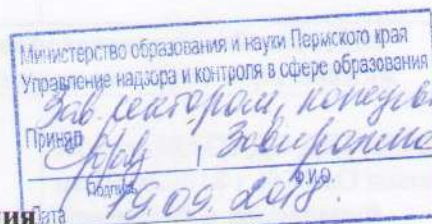 Министерство образования и науки Пермского края
Управление надзора и контроля в сфере образования
Зав. сектором,
Принял
Подпись Ф.И.О.
Дата 19.09.2018
ия